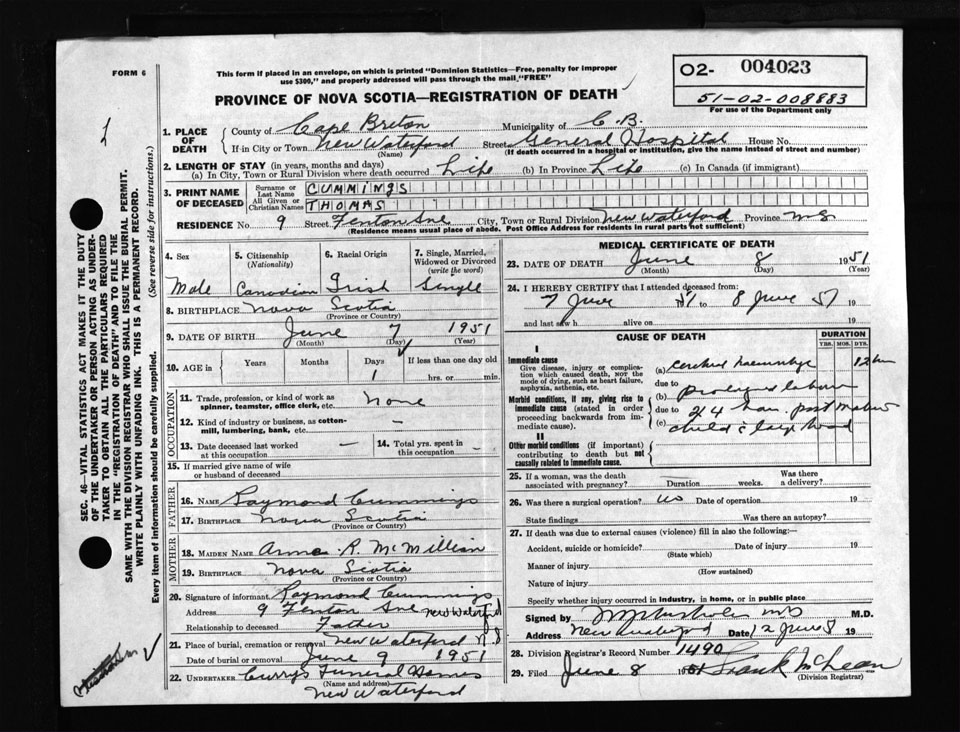 FORM 6
This form if placed in an envelope, on which is printed "Dominion Statistics—Free, penalty for improper
use $300," and properly addressed will pass through the mail, "FREE"
PROVINCE OF NOVA SCOTIA—REGISTRATION OF DEATH
O2- 004023
51-02-008883
For use of the Department only
SEC. 46—VITAL STATISTICS ACT MAKES IT THE DUTY
OF THE UNDERTAKER OR PERSON ACTING AS UNDER-
TAKER TO OBTAIN ALL THE PARTICULARS REQUIRED
IN THE "REGISTRATION OF DEATH" AND TO FILE THE
SAME WITH THE DIVISION REGISTRAR WHO SHALL ISSUE THE BURIAL PERMIT.
WRITE PLAINLY WITH UNFADING INK. THIS IS A PERMANENT RECORD.
Every item of information should be carefully supplied. (See reverse side for instructions.)
1. PLACE OF DEATH County of Cape Breton Municipality of C.B.
If in City or Town New Waterford Street General Hospital House No.
(Name) (If death occurred in a hospital or institution, give the name instead of street and number)
2. LENGTH OF STAY (in years, months and days)
(a) In City, Town or Rural Division where death occurred Life (b) In Province Life (c) In Canada (if immigrant)
3. PRINT NAME OF DECEASED Surname or Last Name CUMMINGS
All Given or Christian Names THOMAS
RESIDENCE No. 9 Street Fenton Ave City, Town or Rural Division New Waterford Province NS
(Residence means usual place of abode. Post Office Address for residents in rural parts not sufficient)
4. Sex 5. Citizenship (Nationality) 6. Racial Origin 7. Single, Married, Widowed or Divorced (write the word)
Male Canadian Irish Single
8. BIRTHPLACE Nova Scotia
(Province or Country)
9. DATE OF BIRTH June 7 1951
(Month) (Day) (Year)
10. AGE in Years Months Days If less than one day old
1 hrs. or min.
OCCUPATION
11. Trade, profession, or kind of work as spinner, teamster, office clerk, etc. None
12. Kind of industry or business, as cotton-mill, lumbering, bank, etc. —
13. Date deceased last worked at this occupation — 14. Total yrs. spent in this occupation —
15. If married give name of wife or husband of deceased
FATHER
16. NAME Raymond Cummings
17. BIRTHPLACE Nova Scotia
(Province or Country)
MOTHER
18. MAIDEN NAME Anna R. McMillian
19. BIRTHPLACE Nova Scotia
(Province or Country)
20. Signature of informant Raymond Cummings
Address 9 Fenton Ave New Waterford
Relationship to deceased Father
21. Place of burial, cremation or removal New Waterford N.S
Date of burial or removal June 9 1951
22. UNDERTAKER Curry's Funeral Homes
(Name and address)
New Waterford
MEDICAL CERTIFICATE OF DEATH
23. DATE OF DEATH June 8 1951
(Month) (Day) (Year)
24. I HEREBY CERTIFY that I attended deceased from:
7 June 51 to 8 June 51 19
and last saw h alive on 19
CAUSE OF DEATH DURATION
YRS. MOS. DYS.
I
Immediate cause
Give disease, injury or complication which caused death, NOT the mode of dying, such as heart failure, asphyxia, asthenia, etc.
(a) cerebral haemorrhage 12 hrs
due to
Morbid conditions, if any, giving rise to immediate cause (stated in order proceeding backwards from immediate cause).
(b) Prolonged labour
due to
(c) 24 hrs. post mature
child large head
II
Other morbid conditions (if important) contributing to death but not causally related to immediate cause.
25. If a woman, was the death associated with pregnancy? Duration weeks. Was there a delivery?
26. Was there a surgical operation? no Date of operation 19
State findings Was there an autopsy?
27. If death was due to external causes (violence) fill in also the following:
Accident, suicide or homicide? Date of injury 19
(State which)
Manner of injury
(How sustained)
Nature of injury
Specify whether injury occurred in industry, in home, or in public place
Signed by M.D.
Address New Waterford Date 12 June 19
28. Division Registrar's Record Number 1490
29. Filed June 8 1951 Frank McLean
(Division Registrar)